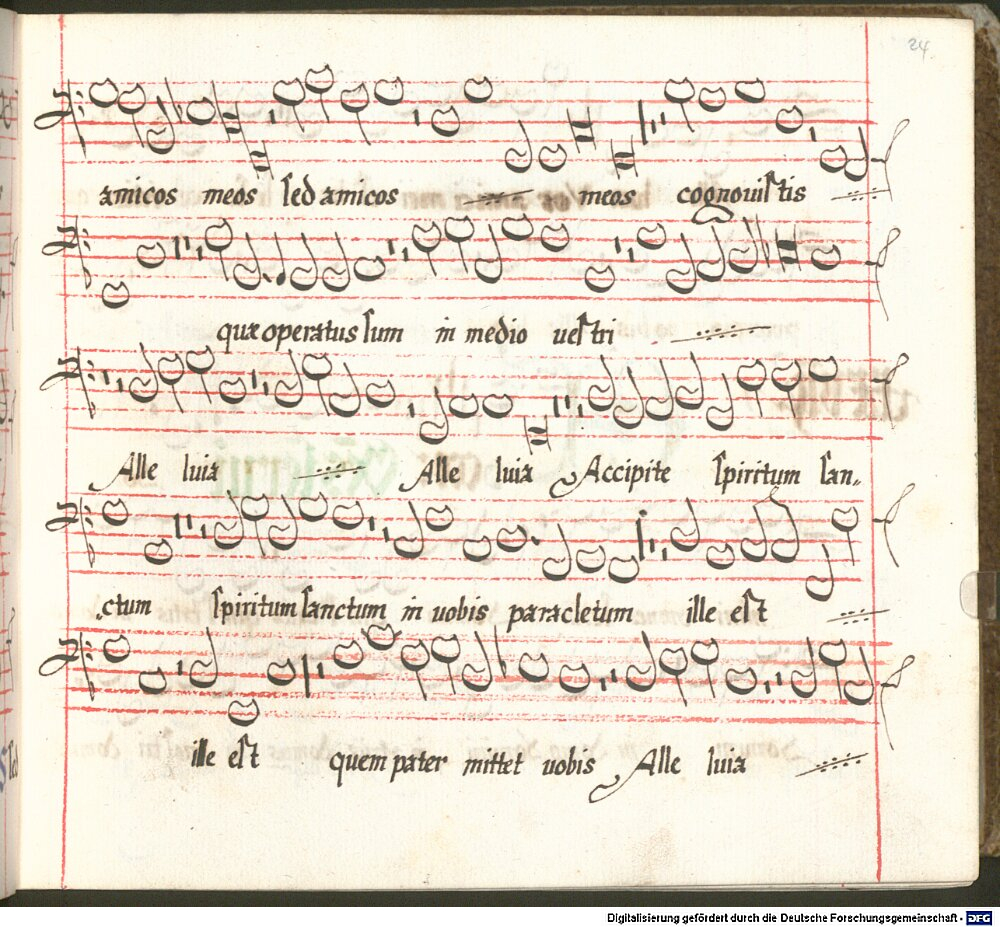 24
amicos meos sed amicos meos cognouistis
quæ operatus sum in medio uestri
Alle luia Alle luia Accipite spiritum san„
ctum spiritum sanctum in uobis paracletum ille est
ille est quem pater mittet uobis Alle luia
Digitalisierung gefördert durch die Deutsche Forschungsgemeinschaft - DFG